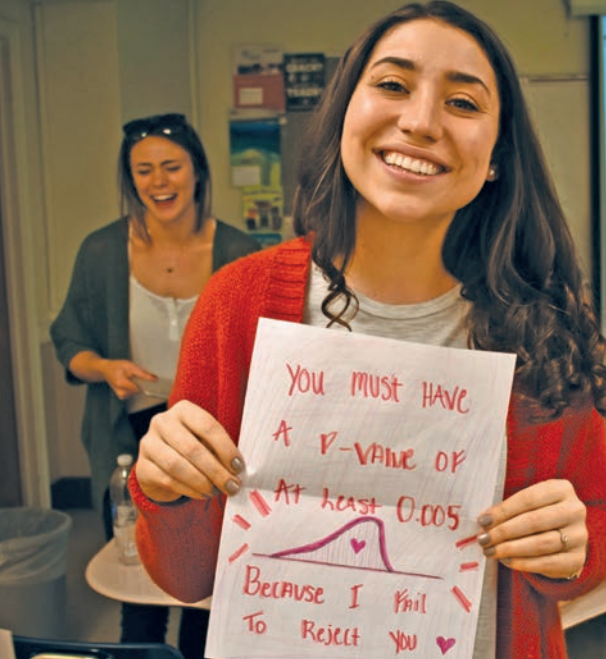 YOU MUST HAVE
A P-VALUE OF
AT LEAST 0.005
BECAUSE I FAIL
TO REJECT YOU